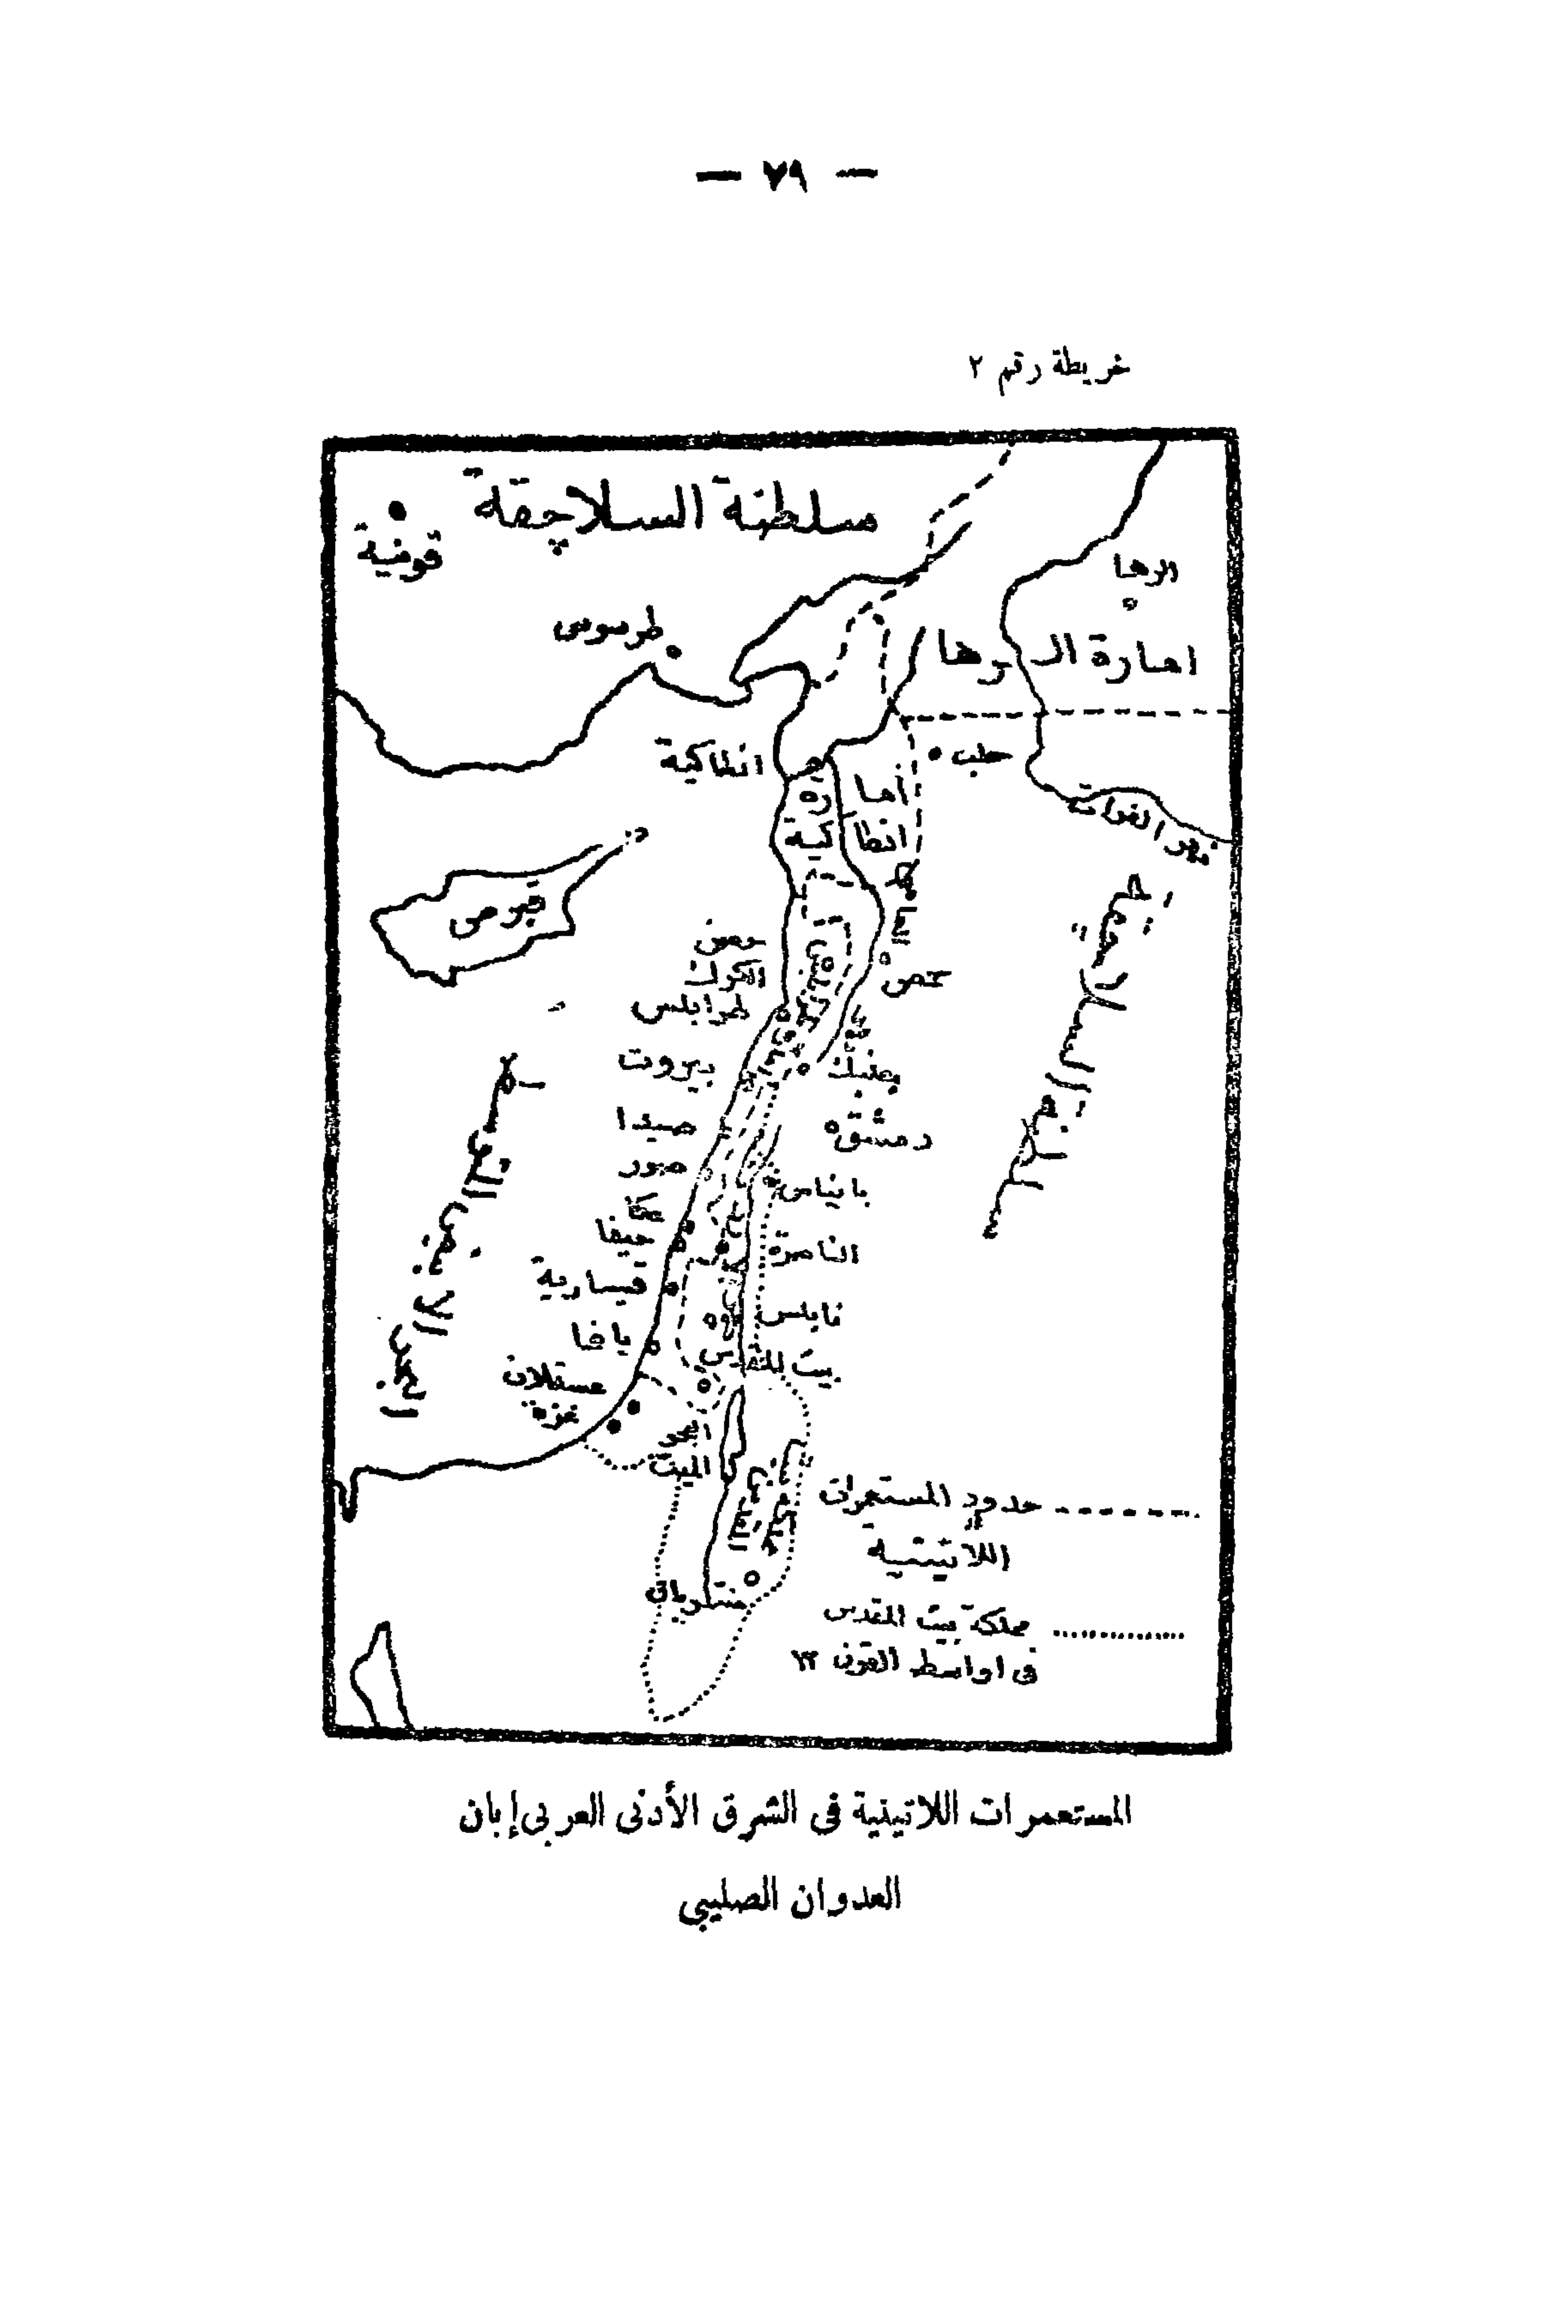 — ٧٩ —
خريطة رقم ٢
سلطنة السلاجقة
قونية
الرها
طرسوس
امارة الرها
انطاكية
حلب
أمارة
انطاكية
نهر الفرات
قبرص
حصن
الكرك
حمص
طرابلس
بيروت
بعلبك
صيدا
دمشق
صور
بانياس
عكا
حيفا
الناصرة
قيسارية
نابلس
يافا
بيت المقدس
عسقلان
غزه
البحر
الميت
البحر الأبيض المتوسط
حدود المستعمرات
اللاتينية
مملكة بيت المقدس
فى اواسط القرن ١٢
المستعمرات اللاتينية فى الشرق الأدنى العربى إبان
العدوان الصليبي